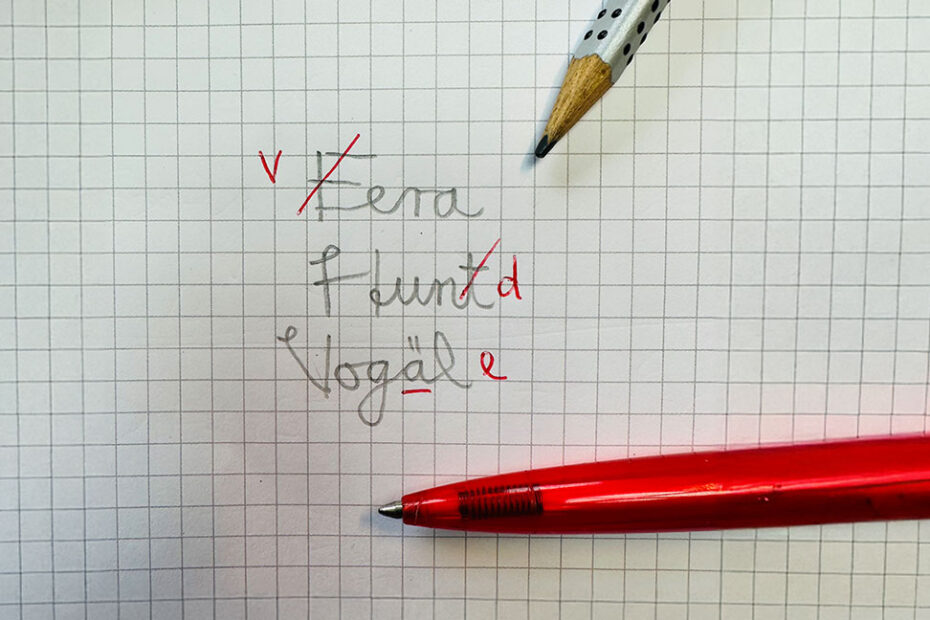 v Fera
Hunt d
Vogäl e